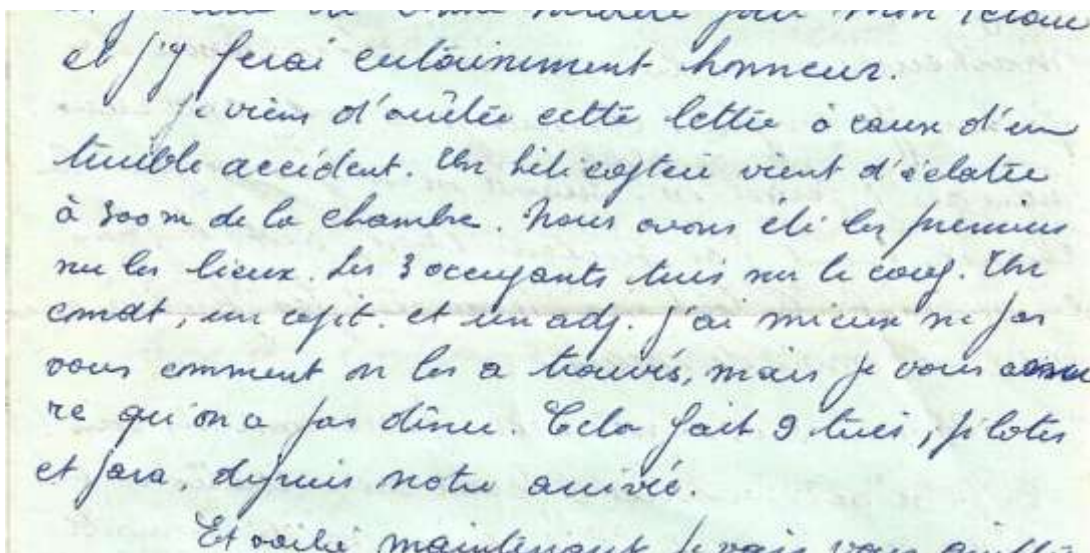 et j'y ferai certainement honneur.
Je viens d'arrêter cette lettre à cause d'un
terrible accident. Un hélicoptère vient d'éclater
à 300 m de la chambre. Nous avons été les premiers
sur les lieux. Les 3 occupants tués sur le coup. Un
cmdt, un capit. et un adj. J'ai mieux ne pas
vous comment on les a trouvés, mais je vous assu
re qu'on a pas dîner. Cela fait 9 tués, pilotes
et para, depuis notre arrivée.
Et voilà maintenant je vais vous